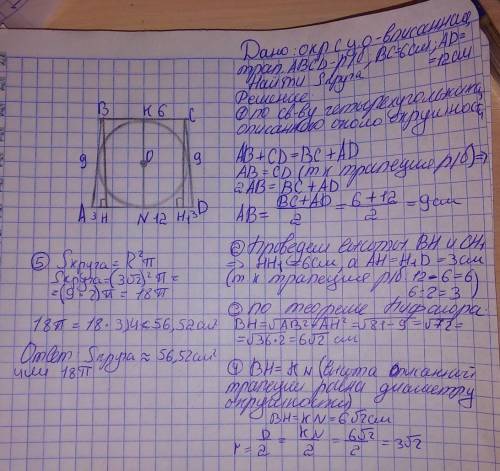 Дано: окр с ц. о - вписанная
трап ABCD - р/б, BC=6см, AD=
=12см
Найти Sкруга
Решение:
① по св-ву четырехугольника,
описанного около окружности
AB+CD=BC+AD
AB=CD (т к трапеция р/б) ⇒
2AB=BC+AD
AB= (BC+AD)/2 = (6+12)/2 = 9см
② Проведем высоты BH и CH₁
⇒ HH₁=6см, а AH=H₁D=3см
(т к трапеция р/б. 12-6=6)
6:2=3
③ по теореме Пифагора
BH=√AB²-AH²=√81-9=√72=
=√36·2=6√2 см
④ BH=KN (высота описанной
трапеции равна диаметру
окружности)
BH=KN=6√2см
r= D/2 = KN/2 = 6√2/2 = 3√2
B K 6 C
9 O 9
A 3 H N 12 H₁ 3 D
⑤ Sкруга=R²π
Sкруга=(3√2)²π=
=(9·2)π=18π
18π=18·3,14≈56,52см
Ответ Sкруга≈56,52см²
или 18π